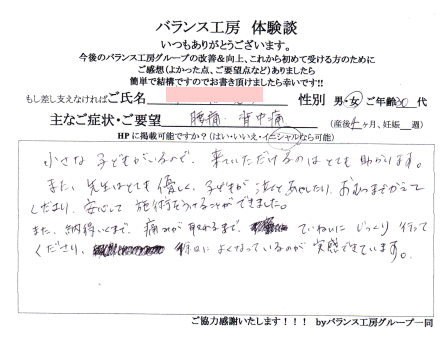 バランス工房 体験談
いつもありがとうございます。
今後のバランス工房グループの改善&向上、これから初めて受ける方のために
ご感想(よかった点、ご要望点など)ありましたら
簡単で結構ですのでお書き頂けましたら幸いです!!
もし差し支えなければご氏名 性別 男・女 ご年齢30代
主なご症状・ご要望 腰痛・背中痛 (産後4ヶ月、妊娠 週)
HPに掲載可能ですか?(はい・いいえ・イニシャルなら可能)
小さな子どもがいるので、来ていただけるのはとても助かります。
また、先生はとても優しく、子どもが泣くとあやしたり、おむつまでかえて
くださり、安心して施術をうけることができました。
また、納得いくまで、痛みが取れるまで、ていねいにじっくり行って
くださり、徐々によくなっているのが実感できています。
ご協力感謝いたします!!! byバランス工房グループ一同